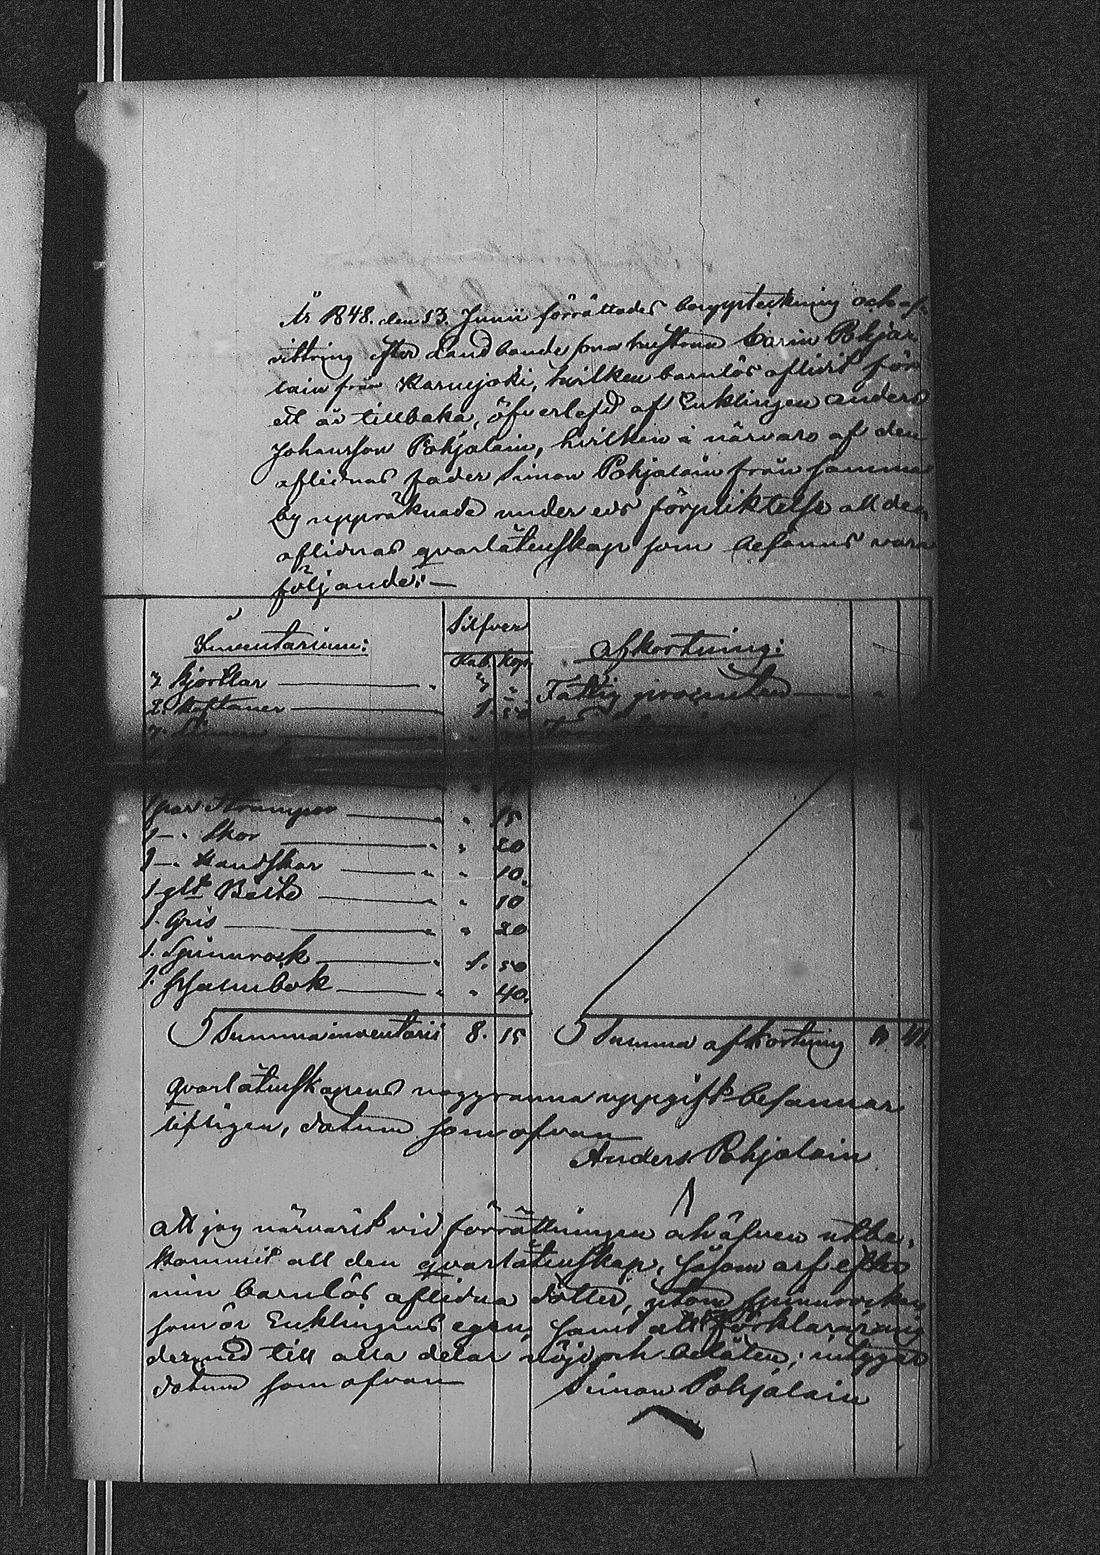 År 1848. den 13. Junii förrättades bouppteckning och af-
vittring efter Landbonde hustrun Carin Pohja-
lain från Karnejoki, hvilken barnlös aflidit för
ett år tillbaka, öfverlefd af Enklingen Anders
Johansson Pohjalain, hvilken i närvaro af den
aflidnas fader Simon Pohjalain från samma
by uppräknade under eds förpliktelse all den
aflidnas qvarlåtenskap som befanns vara
följande:—
Inventarium: Silfver Afkortning:
Rub. Kop.
3. Kjortlar — 3 " Fattig procenten — "
2. Koftaner — 1. 50
1 par Strumpor — " 15
1 — " Skor — " 20
1 — " Handskar — " 10.
1 glt Bälte — " 10
1. Gris — " 20
1. Spinnrock — 1. 50
1. Psalmbok — " 40.
Summa inventarii 8. 15 Summa afkortning
Qvarlåtenskapens noggranna uppgift besannar
liftigen, datum som ofvan
Anders Pohjalain
Att jag närvarit vid förrättningen och äfven utbe-
kommit all den qvarlåtenskap, såsom arf efter
min barnlös aflidna dotter, utom spinnrocken
som är Enklingens egen, samt att förklarar mig
dermed till alla delar nöjd och belåten; intygar
datum som ofvan
Simon Pohjalain